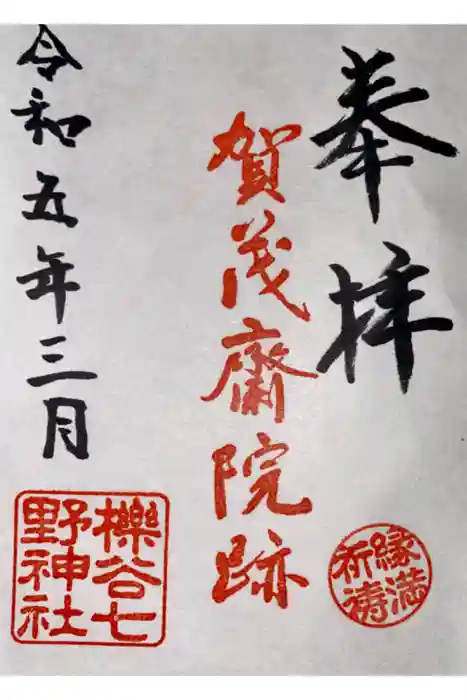 奉拝
賀茂斎院跡
令和五年三月
櫟谷七
野神社
縁満
祈祷